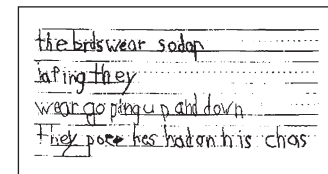 the birds wear so dop
lafing they
wear go ping up and down
they poee hes hadon his chas